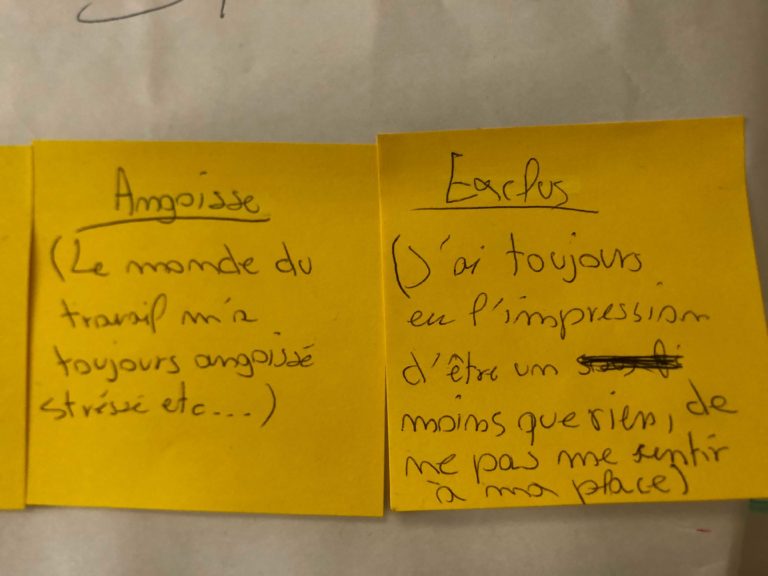 Angoisse
(Le monde du
travail m'a
toujours angoissé
stréssé etc....)
Exclus
(J'ai toujours
eu l'impression
d'être un
moins que rien, de
ne pas me sentir
à ma place)